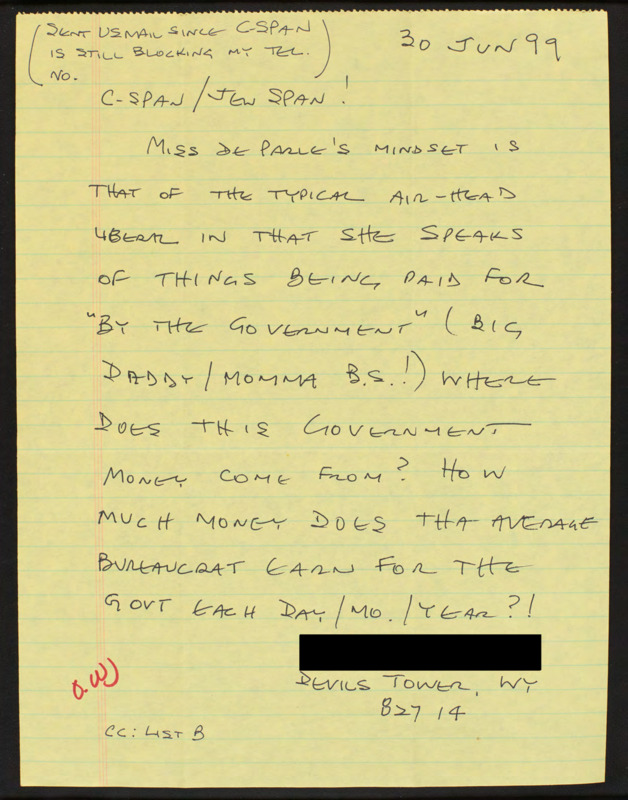 (SENT USMAIL SINCE C-SPAN
IS STILL BLOCKING MY TEL.
NO.)
30 JUN 99
C-SPAN/JEW SPAN!
MISS DE PARLE'S MINDSET IS
THAT OF THE TYPICAL AIR-HEAD
LIBERAL IN THAT SHE SPEAKS
OF THINGS BEING PAID FOR
"BY THE GOVERNMENT" (BIG
DADDY/MOMMA B.S.!) WHERE
DOES THIS GOVERNMENT
MONEY COME FROM? HOW
MUCH MONEY DOES THA AVERAGE
BUREAUCRAT EARN FOR THE
GOVT EACH DAY/MO./YEAR?!
DEVILS TOWER, WY
82714
CC: LIST B